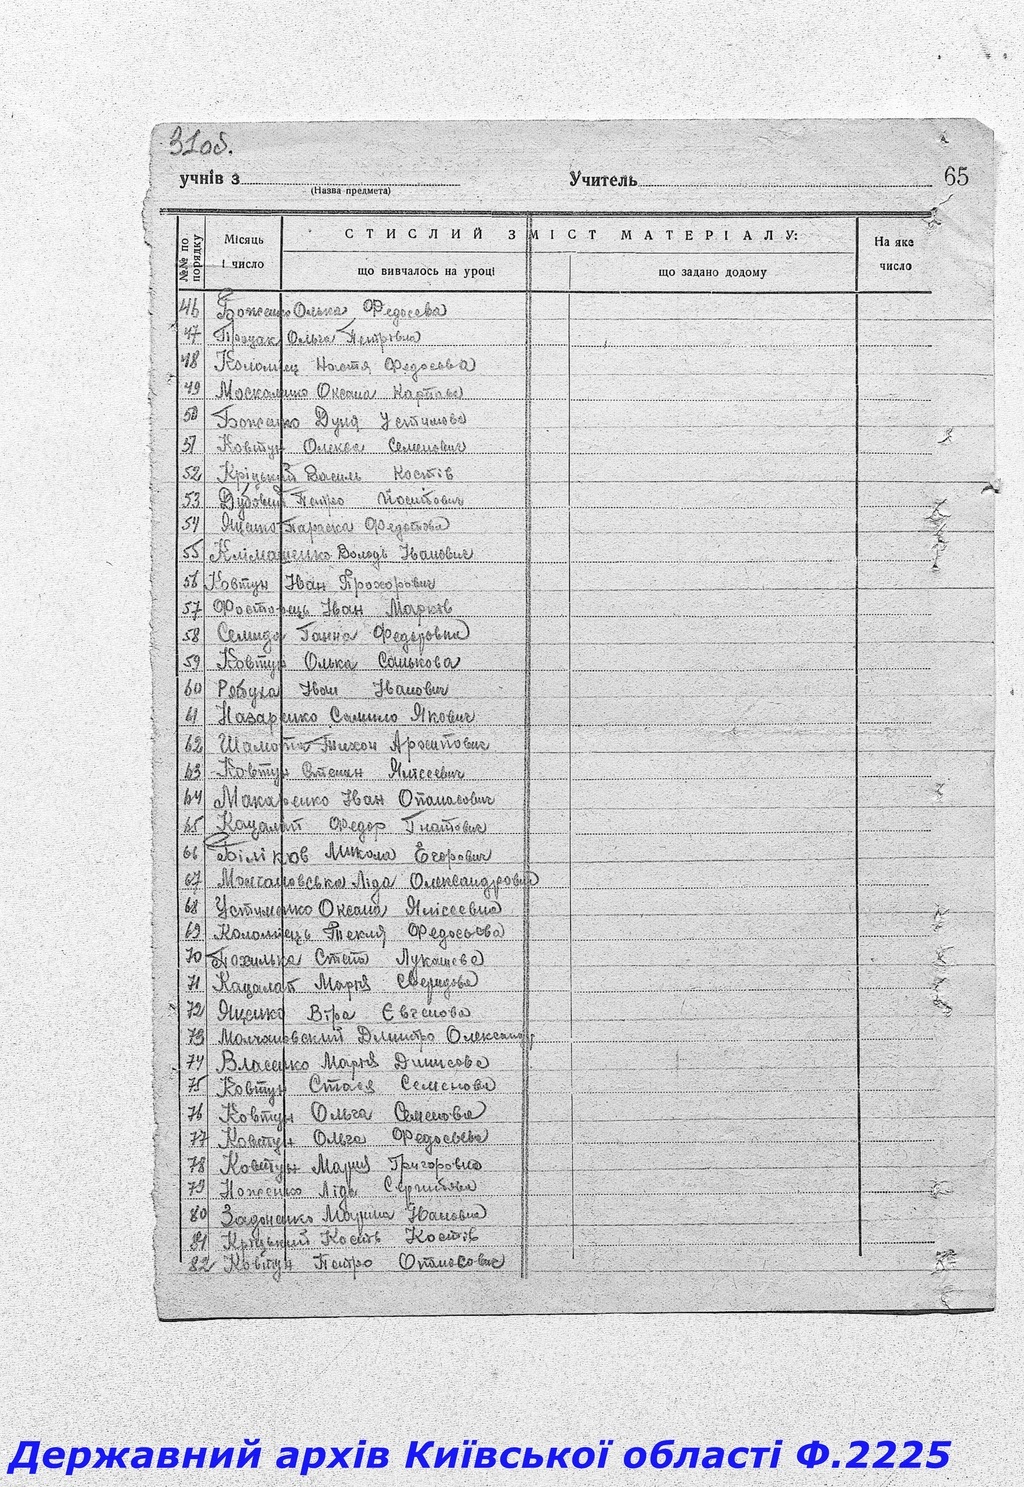 31об.
учнів з
(Назва предмета)
Учитель
65
№№ по порядку
Місяць і число
СТИСЛИЙ ЗМІСТ МАТЕРІАЛУ:
На яке число
що вивчалось на уроці
що задано додому
46 Боженко Олька Федосєва
47 Процак Ольга Петрівна
48 Коломієц Настя Федосєва
49 Москаленко Оксана Карпова
50 Боженко Дуня Устимова
51 Ковтун Олекса Семенович
52 Кріцький Василь Костів
53 Дубовий Петро Йосипович
54 Яценко Параска Федотова
55 Клімашенко Володь Іванович
56 Ковтун Іван Прохорович
57 Іван Марків
58 Семида Ганна Федоровна
59 Ковтун Олька Санькова
60 Рябуха Іван Іванович
61 Назаренко Самило Якович
62 Шамота Тихон Архипович
63 Ковтун Степан Якісеевич
64 Макаренко Іван Опанасович
65 Кацалап Федор Гнатович
66 Біліков Микола Егорович
67 Молчановська Ліда Олександровна
68 Устименко Оксана Якісеевна
69 Коломієць Текля Федосьєва
70 Похилька Степа Лукашева
71 Кацалап Марія Свиридова
72 Яценко Віра Євгенова
73 Молчановский Дмитро Олександр
74 Власенко Марія Динисова
75 Ковтун Стася Семенова
76 Ковтун Ольга Семеновна
77 Ковтун Ольга Федосьєва
78 Ковтун Мария Григоровна
79 Ноженко Ліда
80 Задоненко Марина Івановна
81 Кріцький Кость Костів
82 Ковтун Петро Опанасович
Державний архів Київської області Ф.2225